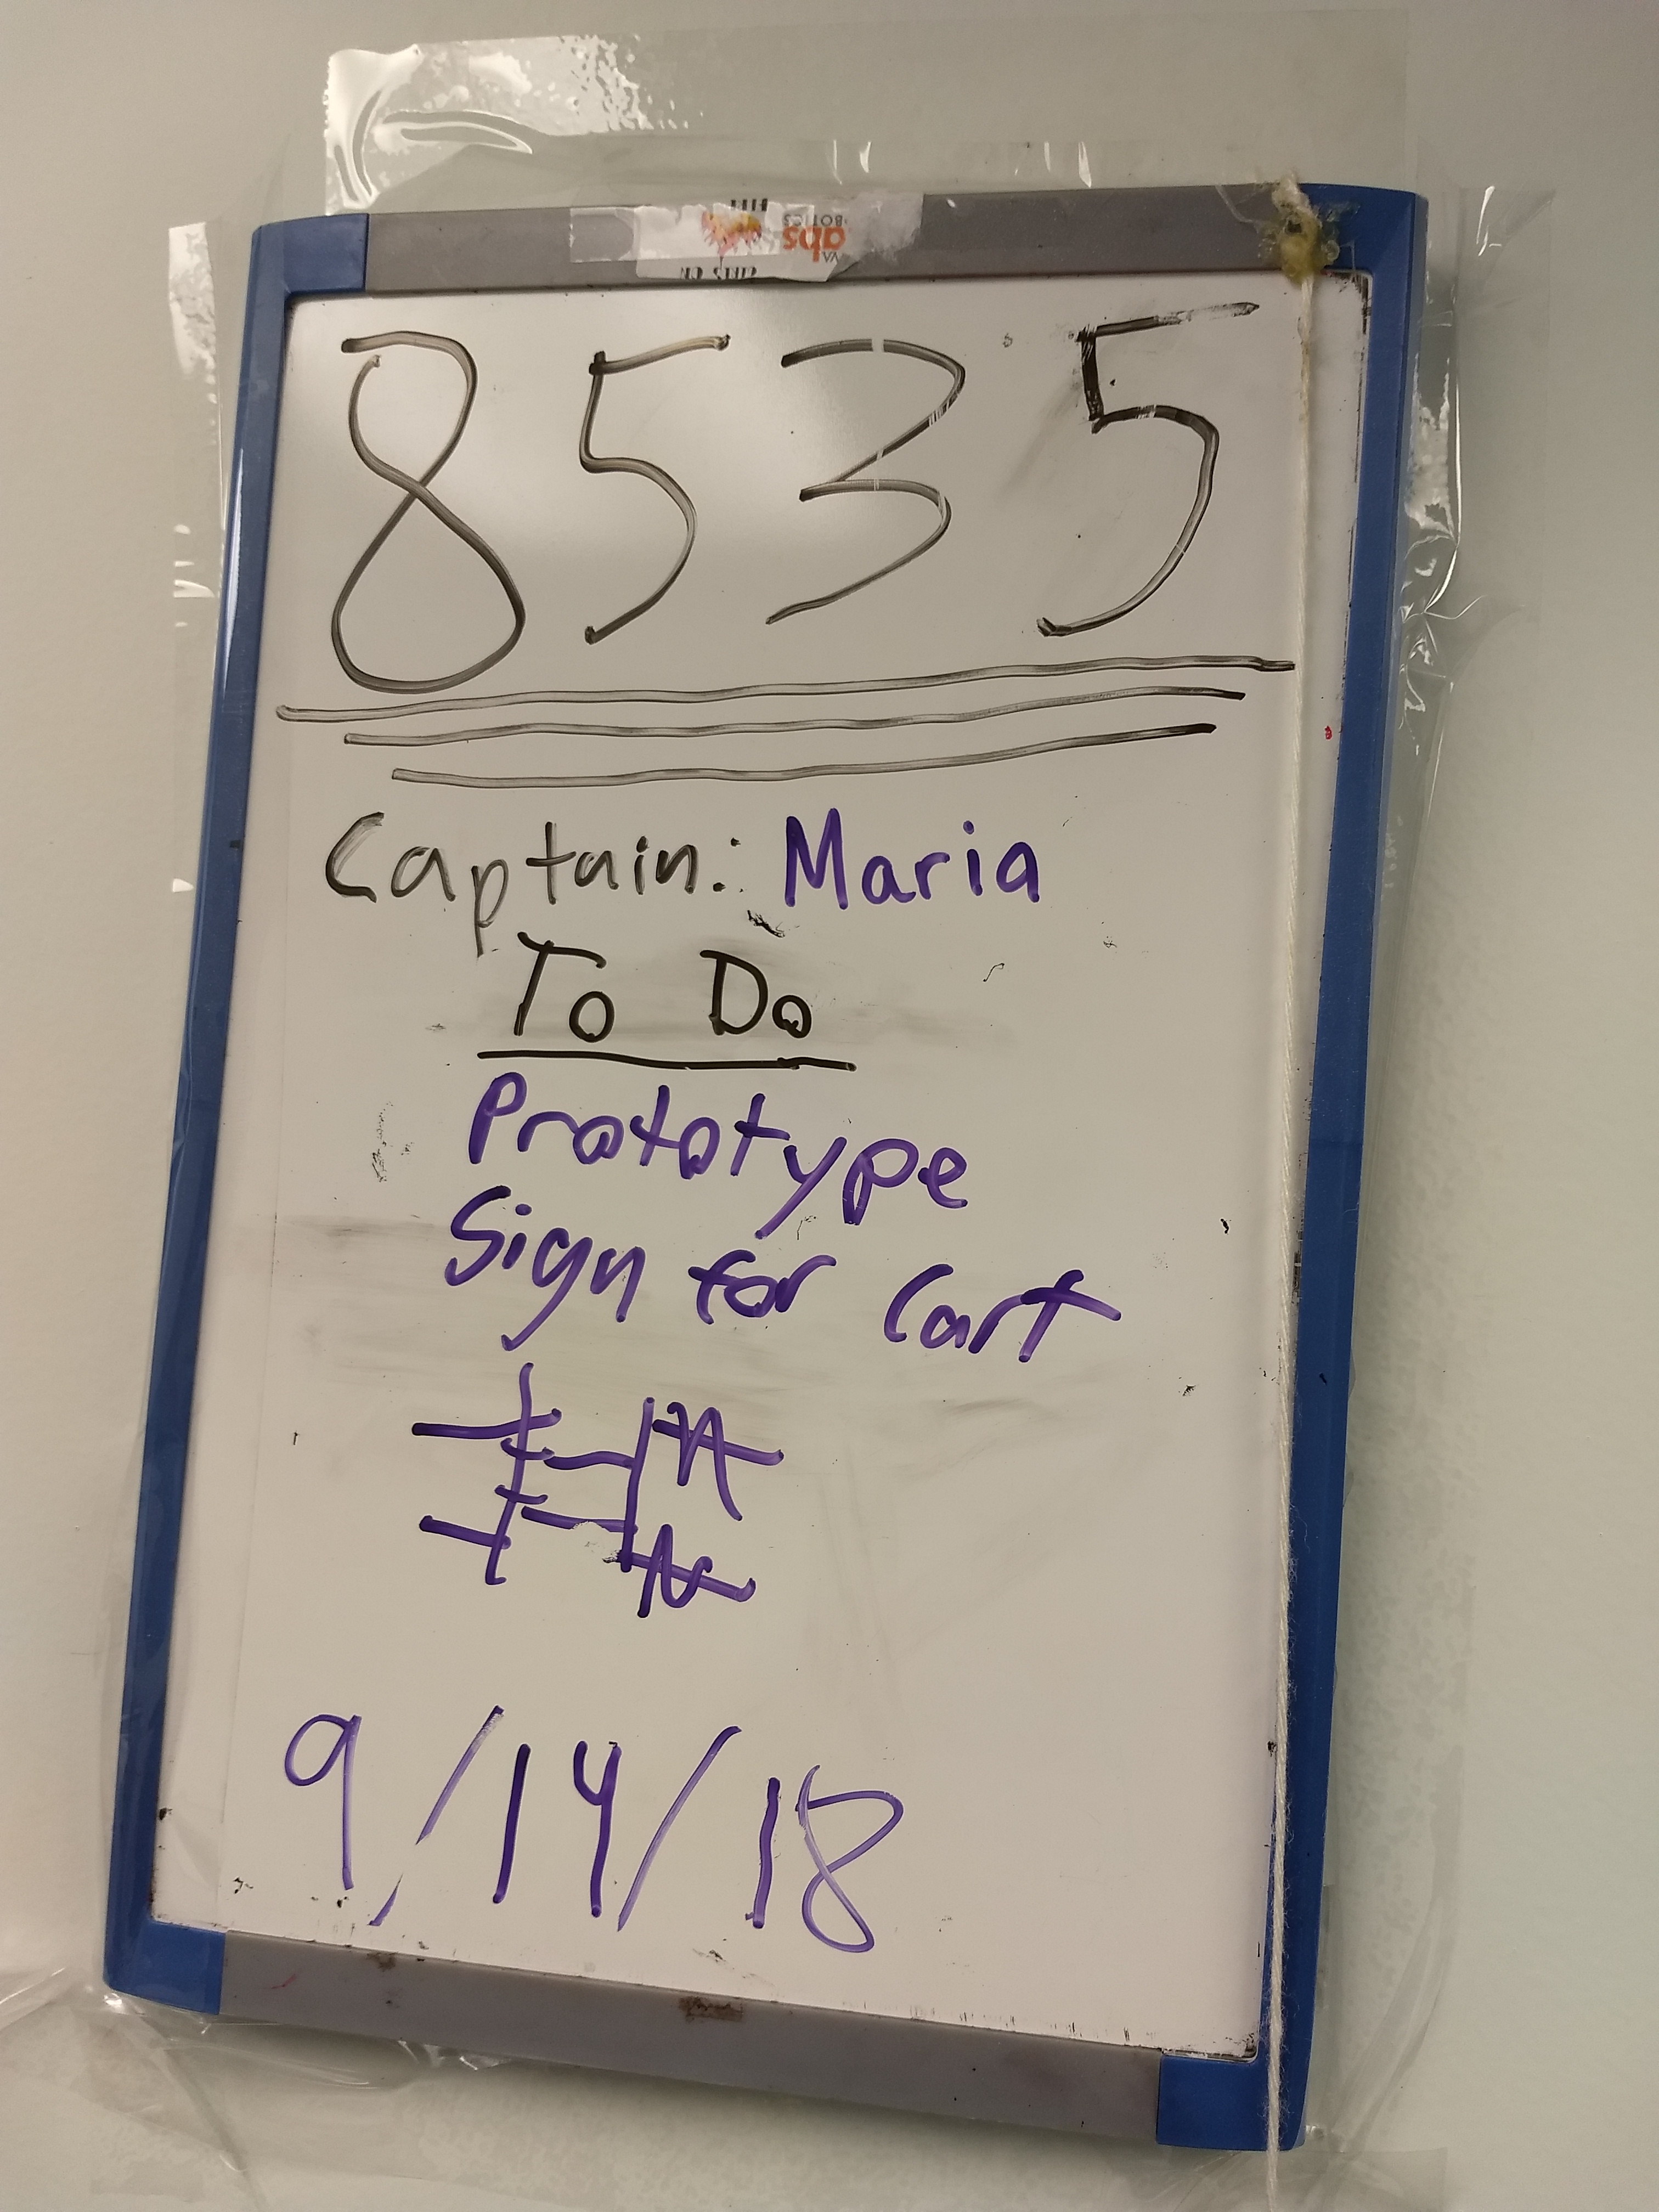 abs
8535
Captain: Maria
To Do
Prototype
Sign for Cart
9/14/18